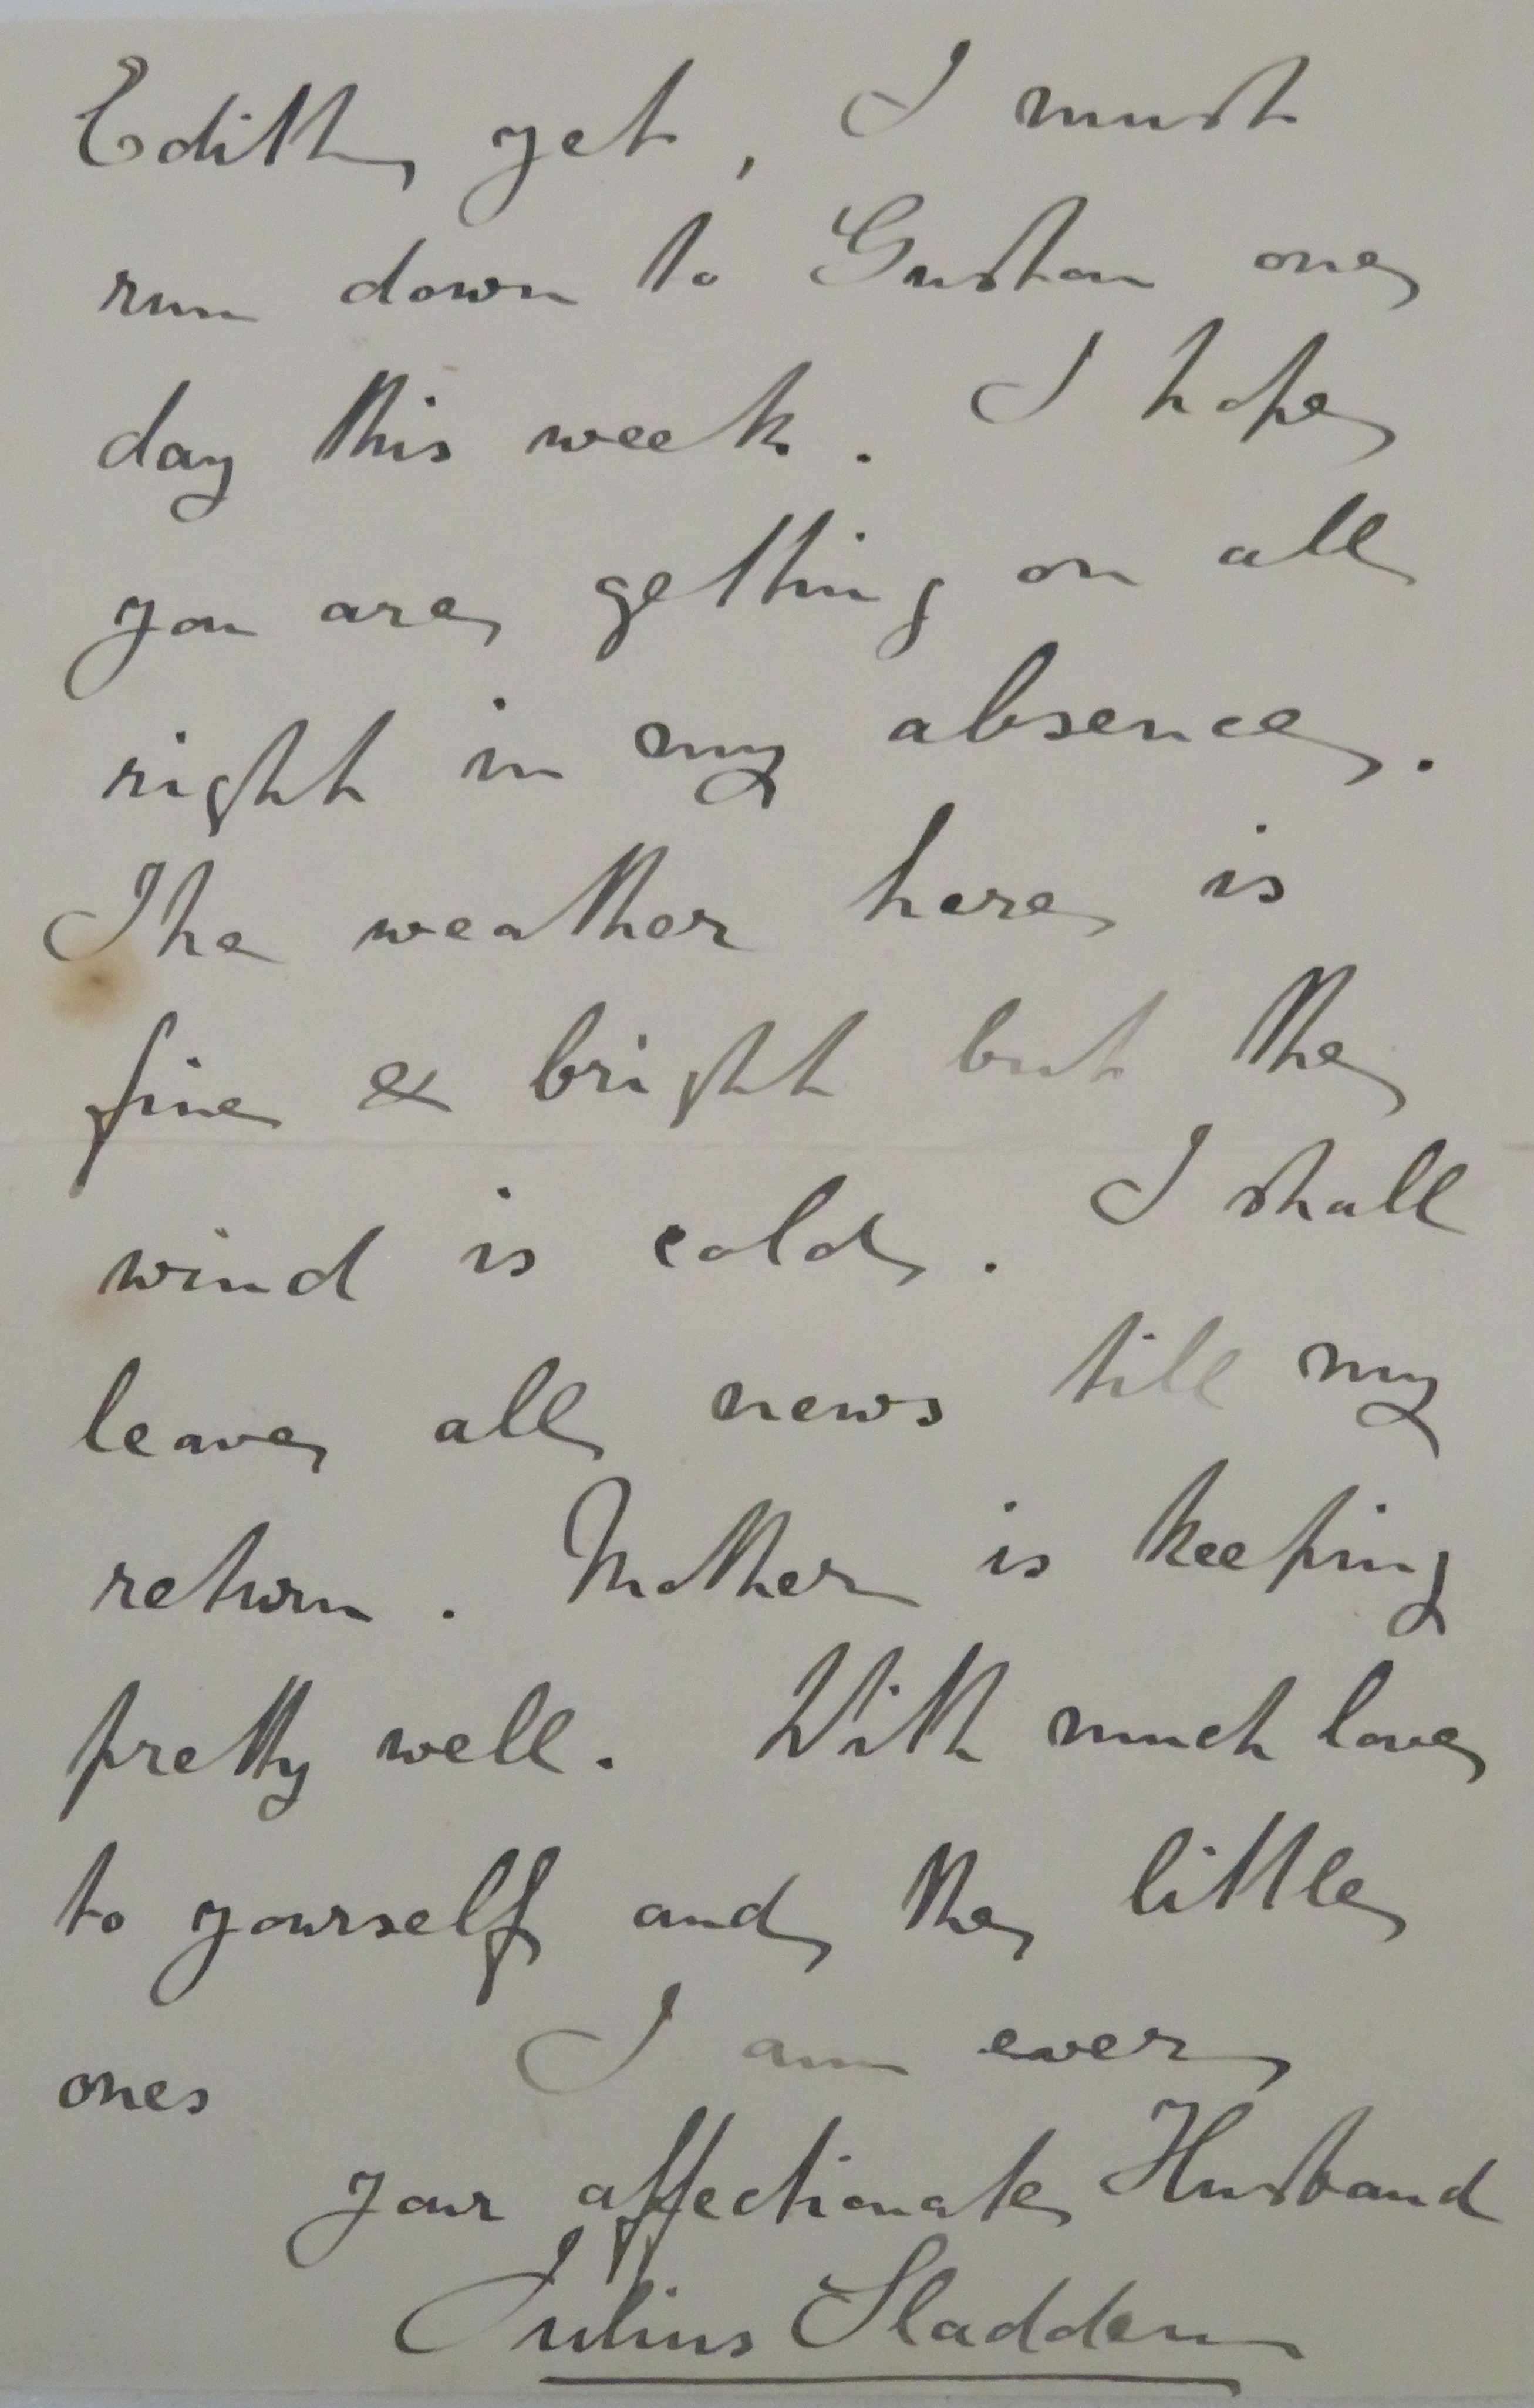 Edith yet, I must
run down to Euston one
day this week. I hope
you are getting on all
right in my absence.
The weather here is
fine & bright but the
wind is cold. I shall
leave all news till my
return. Mother is keeping
pretty well. With much love
to yourself and the little
ones I am ever
your affectionate Husband
Julius Sladden